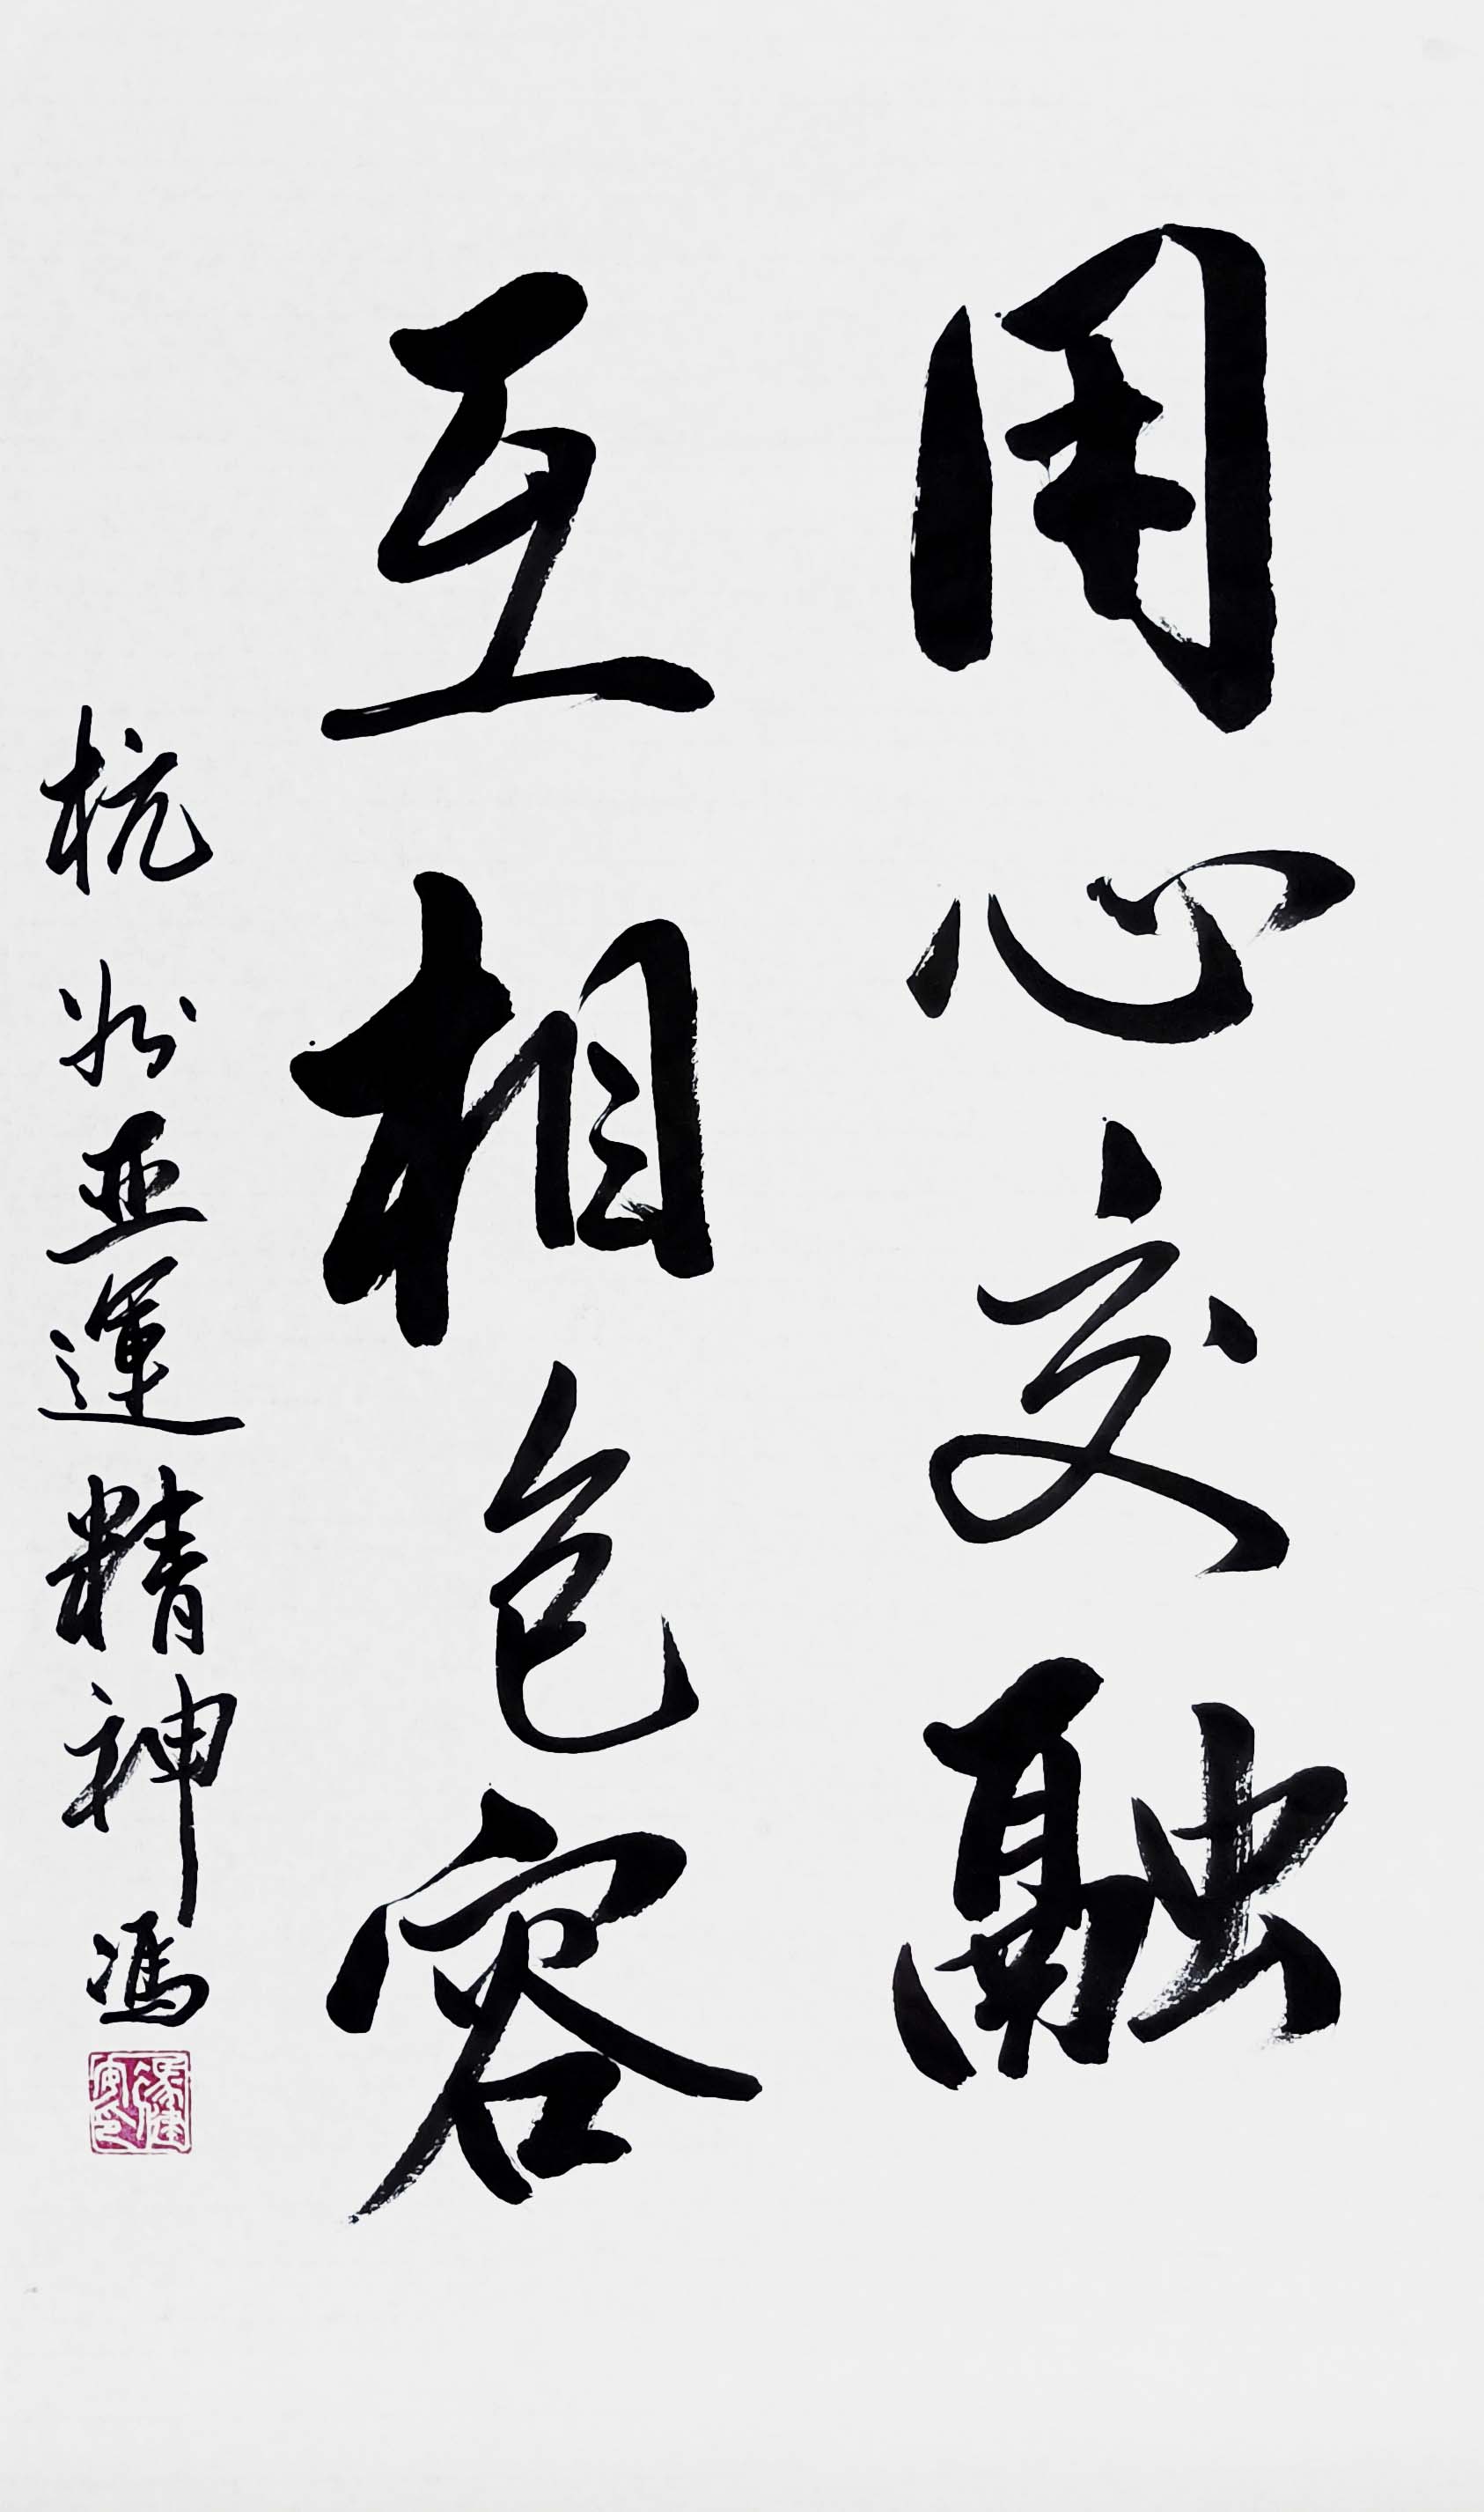 用心交融
互相包容
杭州亞運精神馮